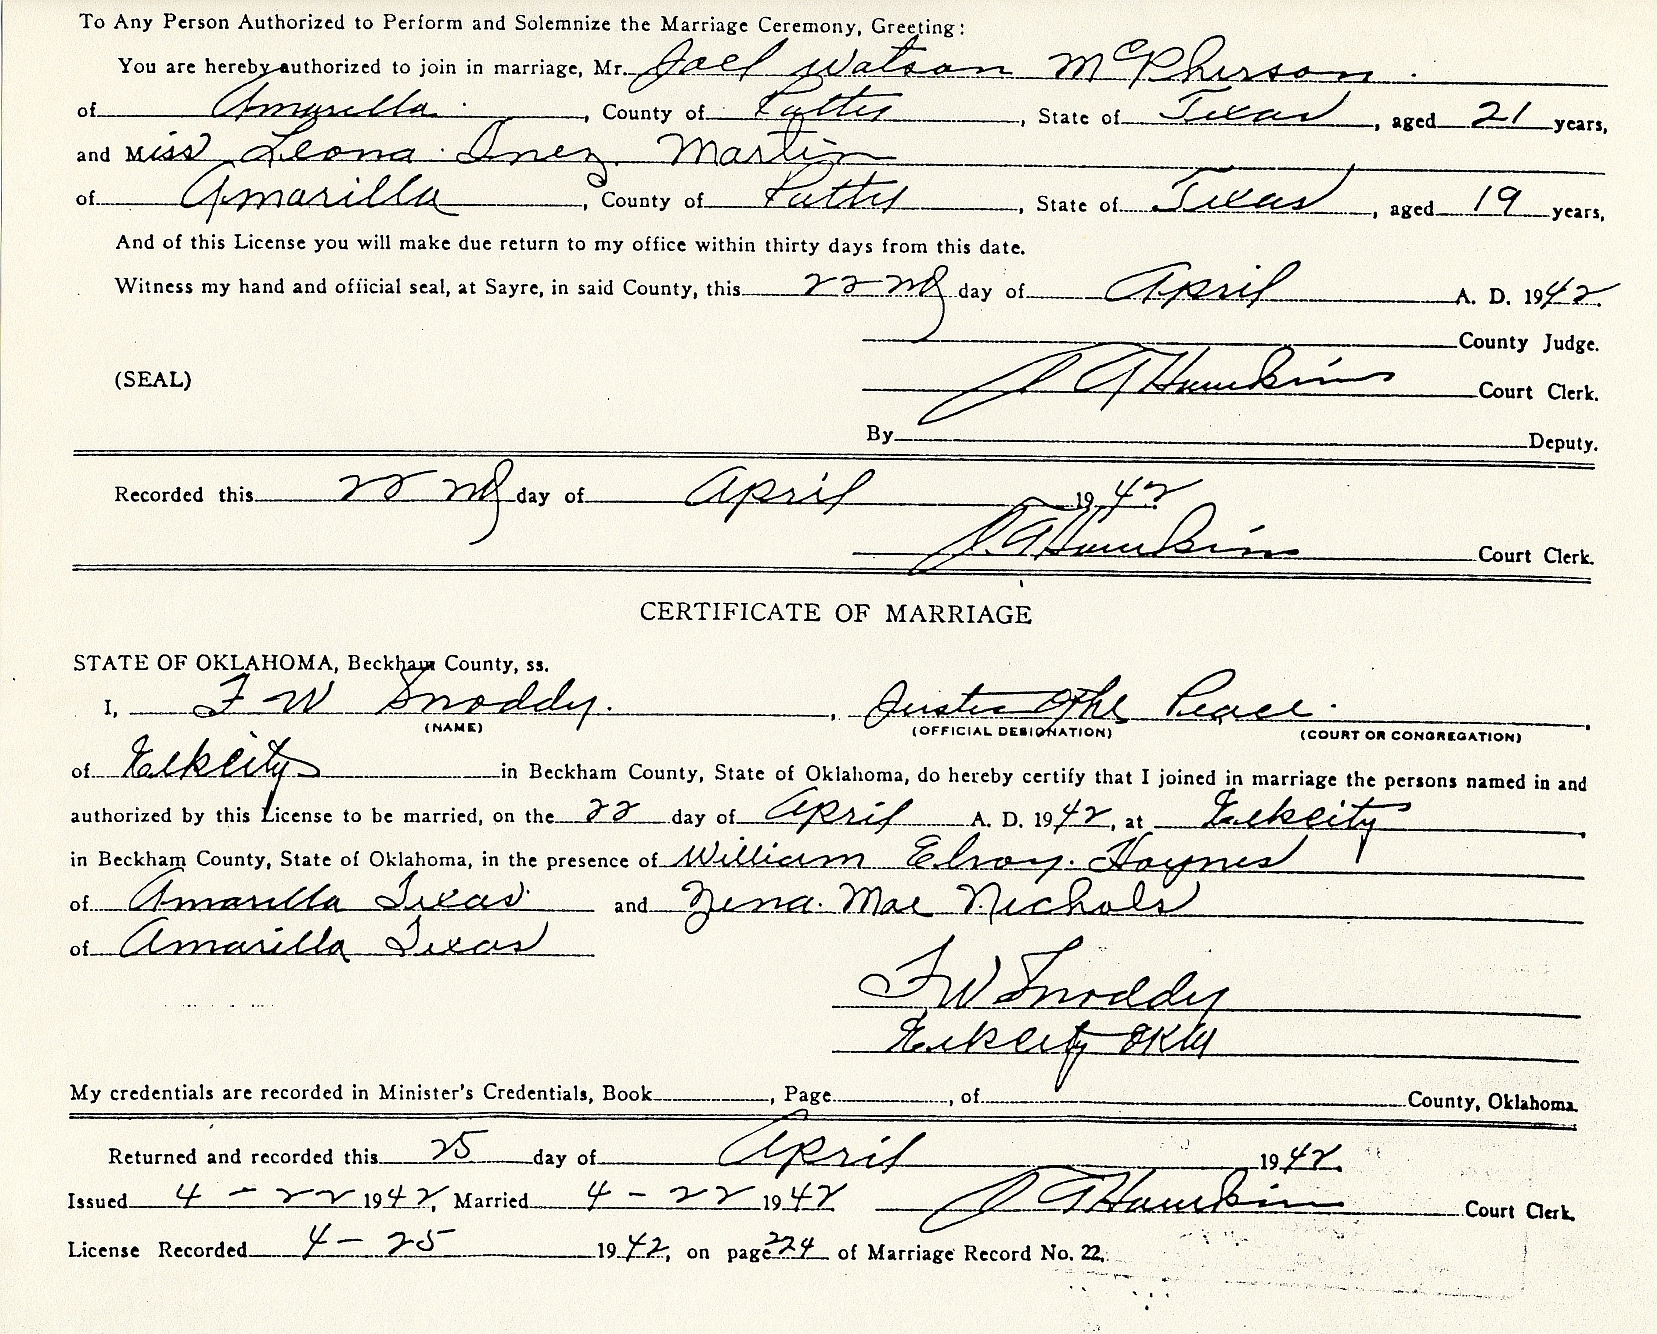 To Any Person Authorized to Perform and Solemnize the Marriage Ceremony, Greeting:
You are hereby authorized to join in marriage, Mr. Joel Watson McPherson.
of Amarilla, County of Potter, State of Texas, aged 21 years,
and Miss Leona Inez Martin
of Amarilla, County of Potter, State of Texas, aged 19 years,
And of this License you will make due return to my office within thirty days from this date.
Witness my hand and official seal, at Sayre, in said County, this 22nd day of April A. D. 1942.
County Judge.
(SEAL) Hawkins Court Clerk.
By Deputy.
Recorded this 22nd day of April 1942
Hawkins Court Clerk.
CERTIFICATE OF MARRIAGE
STATE OF OKLAHOMA, Beckham County, ss.
I, F W Snoddy, Justice of the Peace.
(NAME) (OFFICIAL DESIGNATION) (COURT OR CONGREGATION)
of Elkcity in Beckham County, State of Oklahoma, do hereby certify that I joined in marriage the persons named in and
authorized by this License to be married, on the 22 day of April A. D. 1942, at Elkcity
in Beckham County, State of Oklahoma, in the presence of William Elroy Haynes
of Amarilla Texas and Zena Mae Nichols
of Amarilla Texas
F W Snoddy
Elkcity Okla
My credentials are recorded in Minister's Credentials, Book, Page, of County, Oklahoma.
Returned and recorded this 25 day of April 1942.
Issued 4-22 1942, Married 4-22 1942 Hawkins Court Clerk.
License Recorded 4-25 1942, on page 224 of Marriage Record No. 22.